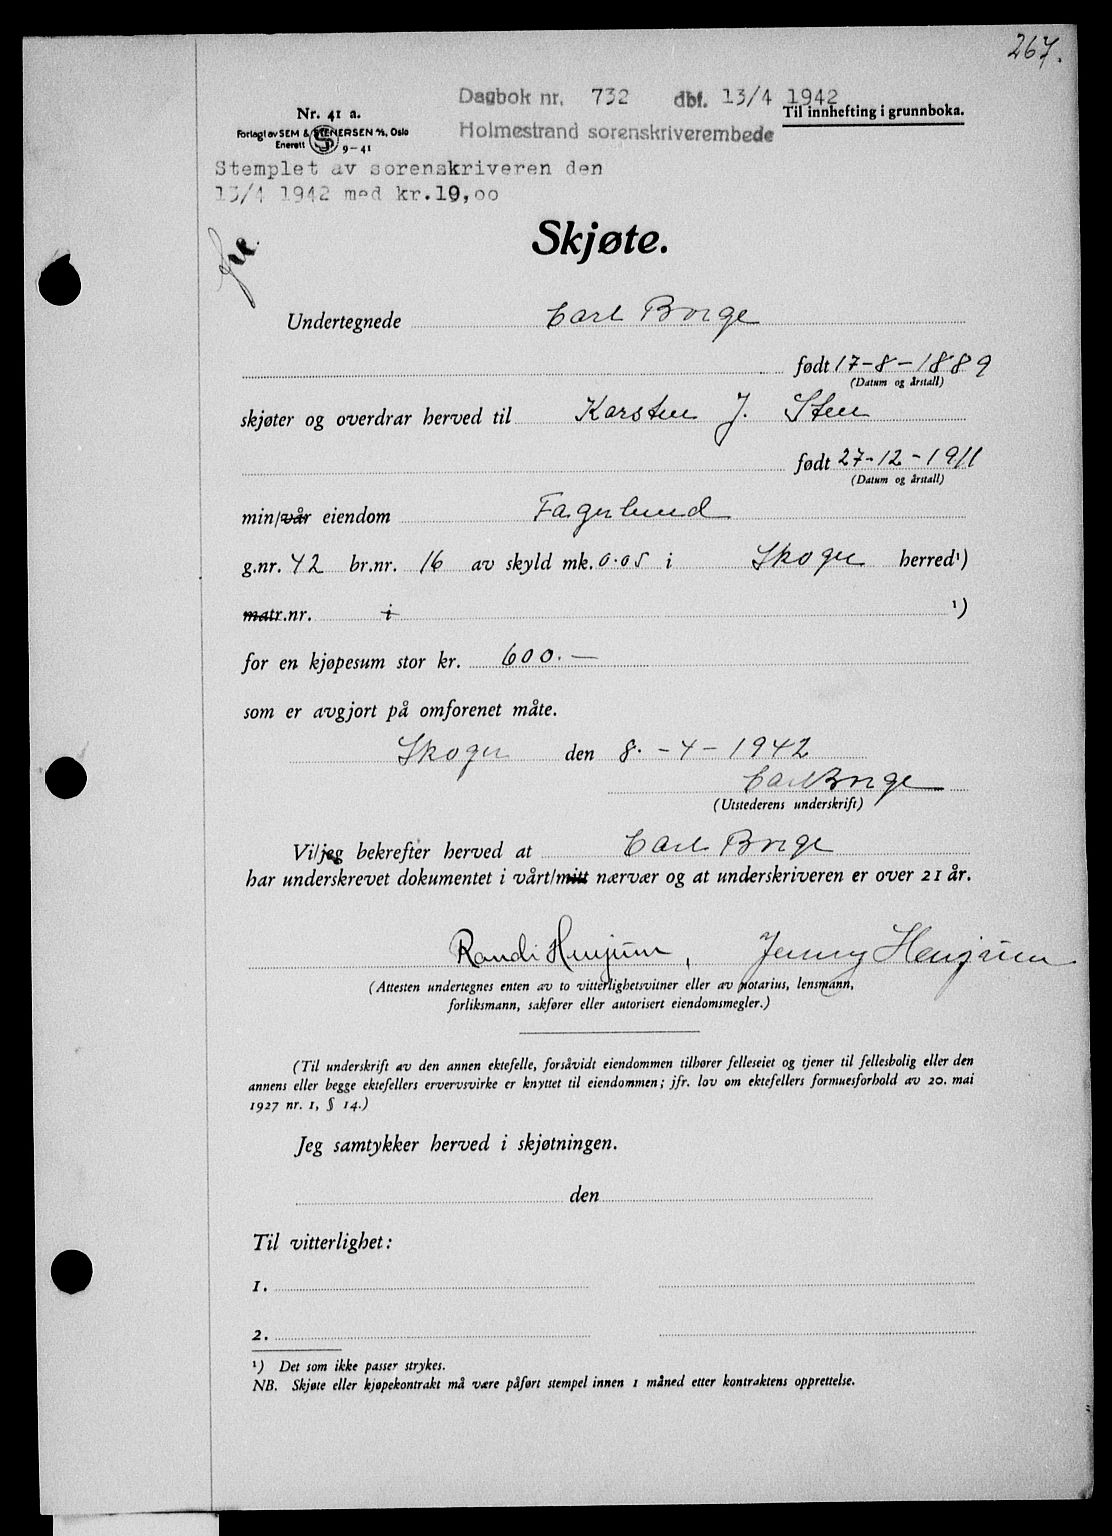 267.
Dagbok nr. 732 dbf. 13/4 1942
Nr. 41 a. Til innhefting i grunnboka.
Forlagt av SEM & STENERSEN A/S, Oslo
Enerett 9-41
Holmestrand sorenskriverembede
Stemplet av sorenskriveren den
13/4 1942 med kr.10,oo
Skjøte.
Undertegnede Carl Borge
født 17-8-1889
(Datum og årstall)
skjøter og overdrar herved til Karsten J. Steen
født 27-12-1911
(Datum og årstall)
min/vår eiendom Fagerlund
g.nr. 42 br.nr. 16 av skyld mk. 0.05 i Skoger herred¹)
matr.nr. i ¹)
for en kjøpesum stor kr. 600.—
som er avgjort på omforenet måte.
Skoger den 8.-4-1942
Carl Borge
(Utstederens underskrift)
Vi/jeg bekrefter herved at Carl Borge
har underskrevet dokumentet i vårt/mitt nærvær og at underskriveren er over 21 år.
Randi Henjum, Jenny Henjum
(Attesten undertegnes enten av to vitterlighetsvitner eller av notarius, lensmann,
forliksmann, sakfører eller autorisert eiendomsmegler.)
(Til underskrift av den annen ektefelle, forsåvidt eiendommen tilhører felleseiet og tjener til fellesbolig eller den
annens eller begge ektefellers ervervsvirke er knyttet til eiendommen; jfr. lov om ektefellers formuesforhold av 20. mai
1927 nr. 1, § 14.)
Jeg samtykker herved i skjøtningen.
den
Til vitterlighet:
1.
2.
¹) Det som ikke passer strykes.
NB. Skjøte eller kjøpekontrakt må være påført stempel innen 1 måned etter kontraktens opprettelse.